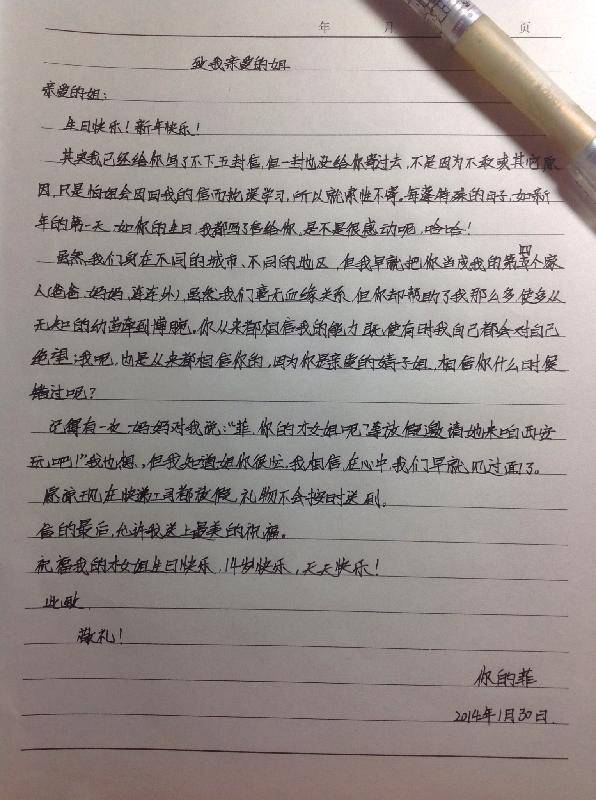 年 月 页
致我亲爱的姐
亲爱的姐:
生日快乐!新年快乐!
其实我已经给你写了不下五封信,但一封也没给你寄过去,不是因为不敢或其它原
因,只是怕姐会因回我的信而耽误学习,所以就索性不寄。每逢特殊的日子,如新
年的第一天,如你的生日,我都写了信给你,是不是很感动呢,哈哈!
虽然我们身在不同的城市、不同的地区,但我早就把你当成我的第四个家
人(爸爸、妈妈、连连外),虽然我们毫无血缘关系,但你却帮助了我那么多,使多从
无知的幼苗牵到懵聪。你从来都相信我的能力,既使有时我自己都会对自己
绝望;我呢,也是从来都相信你的,因为你是亲爱的婧子姐,相信你什么时候
错过呢?
记得有一次,妈妈对我说:“菲,你的才女姐呢?等放假邀请她来咱西安
玩吧!”我也想,但我知道姐你很忙,我相信,在心中,我们早就见过面了。
原谅现在快递公司都放假,礼物不会按时送到。
信的最后,允许我送上最美的祝福。
祝福我的才女姐生日快乐,14岁快乐,天天快乐!
此致
敬礼!
你的菲
2014年1月30日.